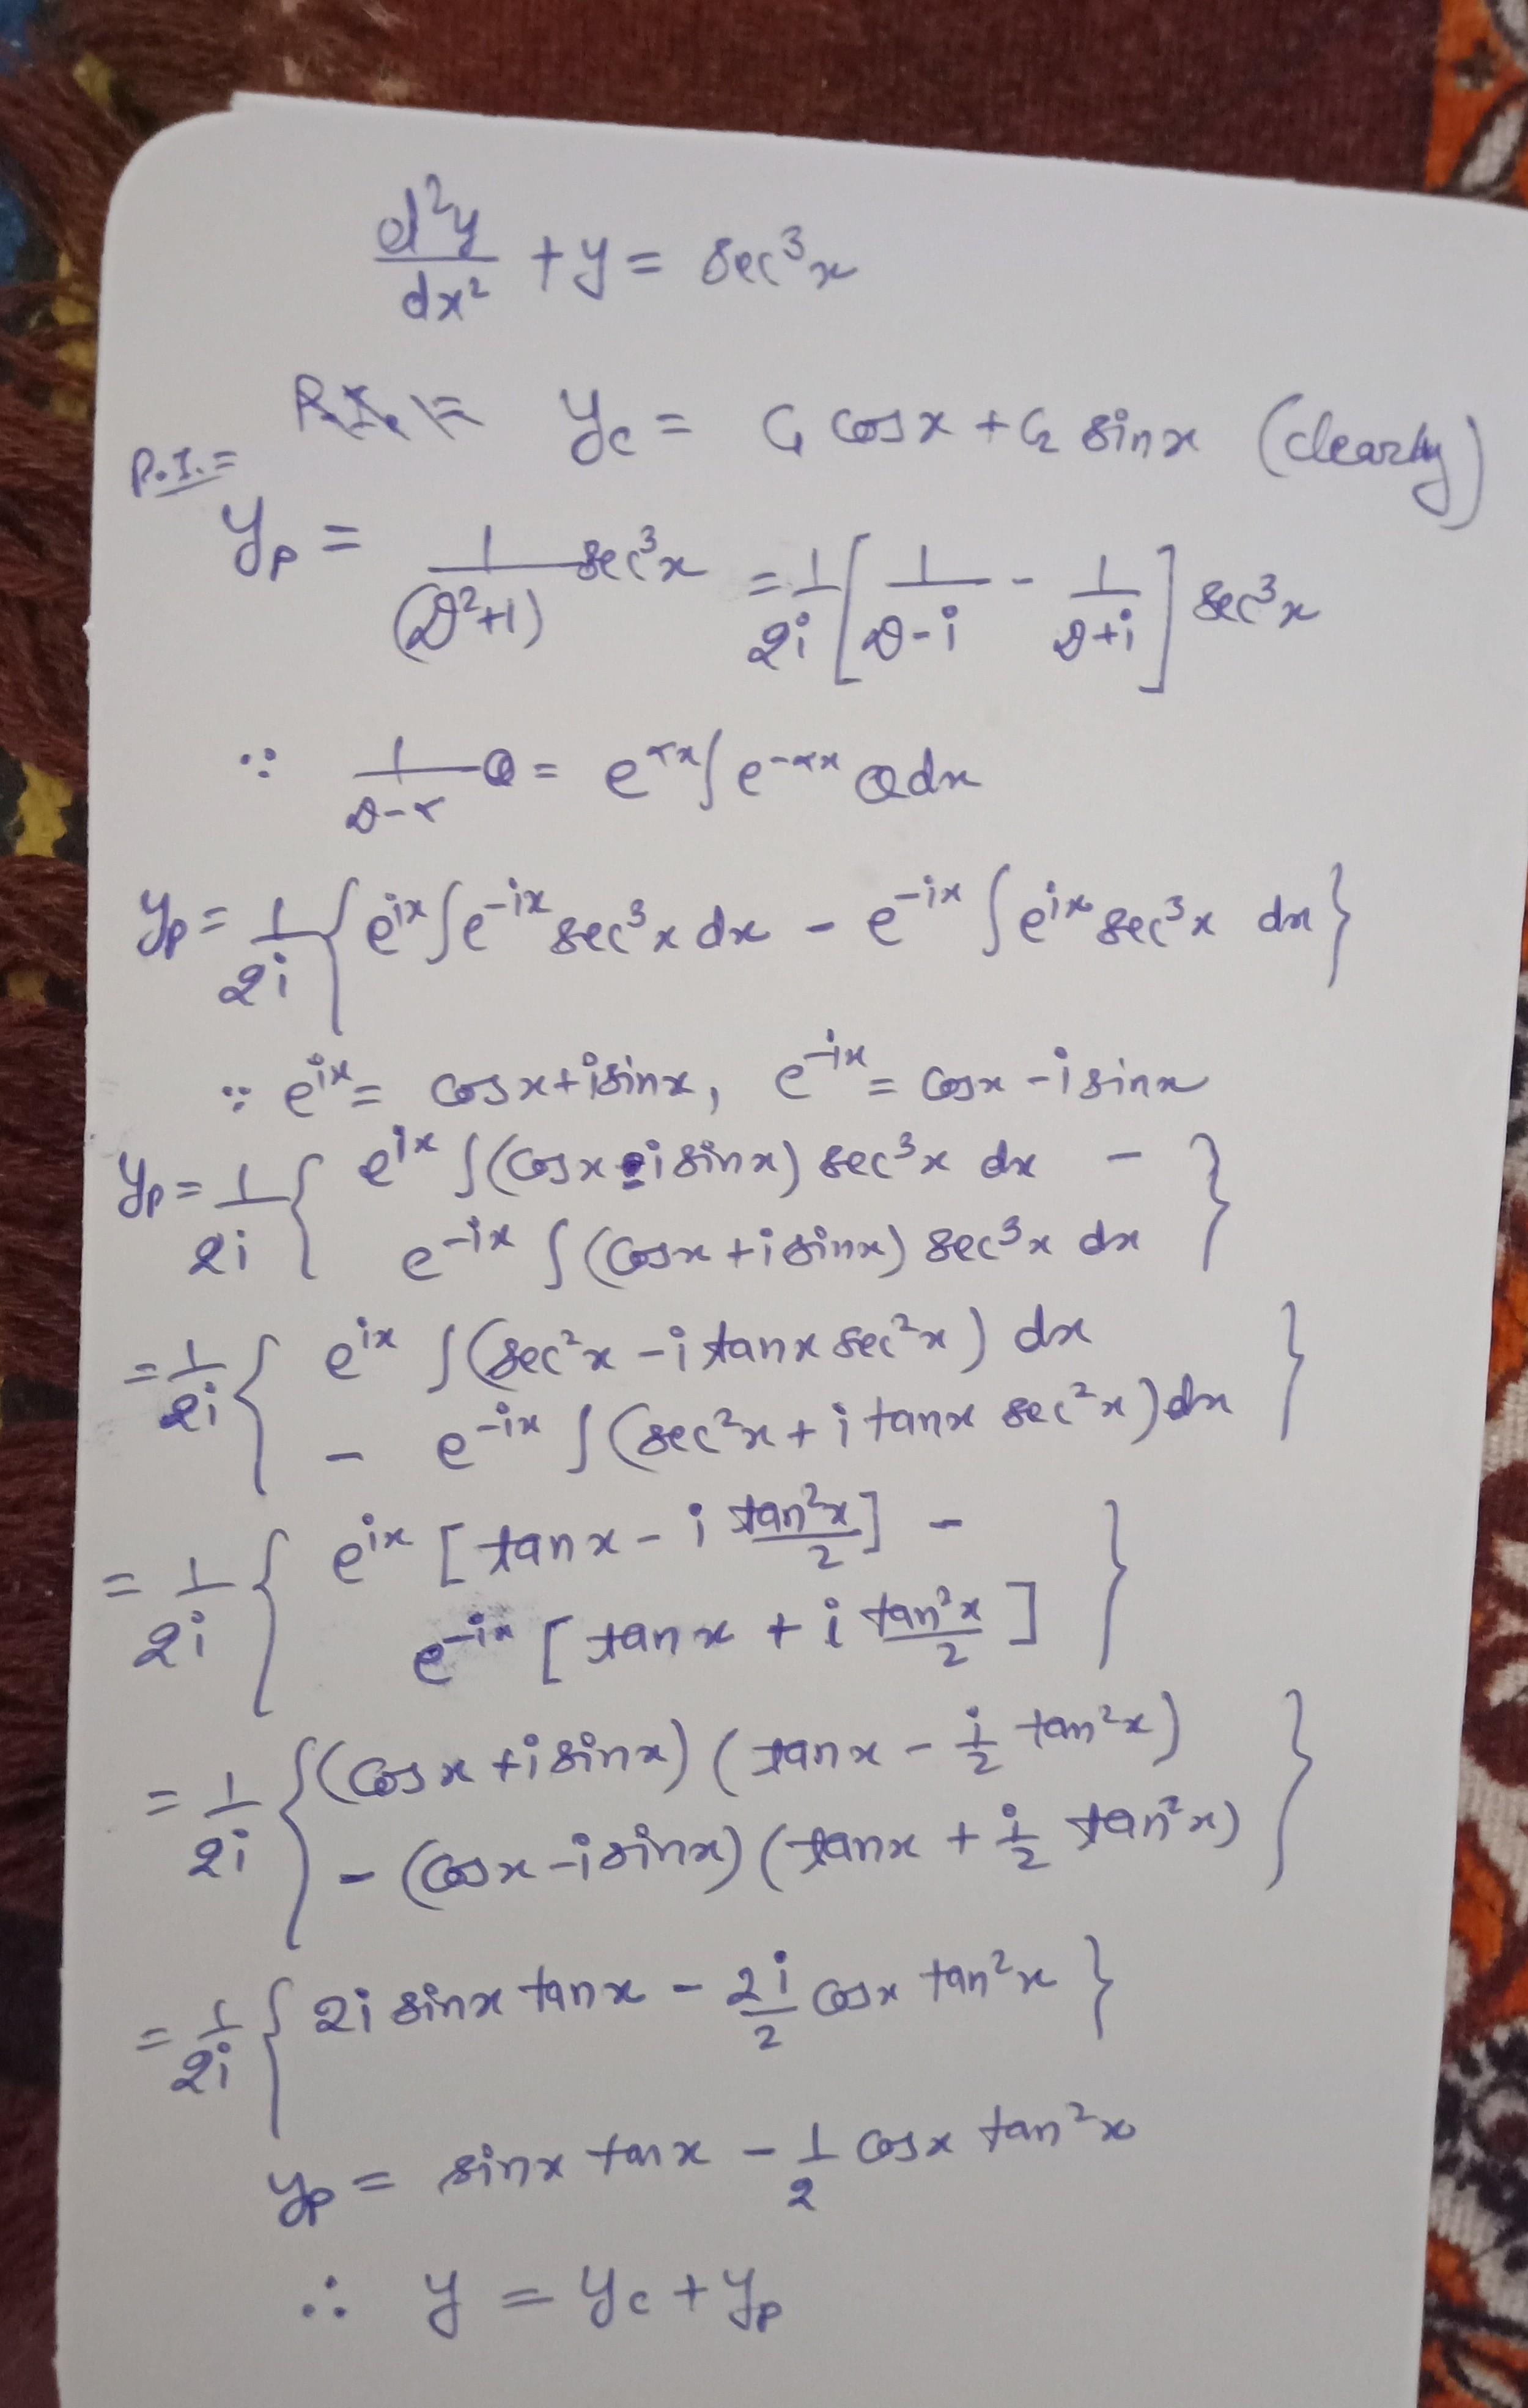 d²y/dx² + y = sec³x
P.I. = y_c = C₁ cosx + C₂ sinx (clearly)
P.I. =
y_p = 1/(D²+1) sec³x = 1/2i [1/(D-i) - 1/(D+i)] sec³x
∵ 1/(D-α) Q = e^{αx} ∫ e^{-αx} Q dx
y_p = 1/2i { e^{ix} ∫ e^{-ix} sec³x dx - e^{-ix} ∫ e^{ix} sec³x dx }
∵ e^{ix} = cosx + i sinx, e^{-ix} = cosx - i sinx
y_p = 1/2i { e^{ix} ∫ (cosx - i sinx) sec³x dx -
e^{-ix} ∫ (cosx + i sinx) sec³x dx }
= 1/2i { e^{ix} ∫ (sec²x - i tanx sec²x) dx
- e^{-ix} ∫ (sec²x + i tanx sec²x) dx }
= 1/2i { e^{ix} [tanx - i tan²x/2] -
e^{-ix} [tanx + i tan²x/2] }
= 1/2i { (cosx + i sinx) (tanx - i/2 tan²x)
- (cosx - i sinx) (tanx + i/2 tan²x) }
= 1/2i { 2i sinx tanx - 2i/2 cosx tan²x }
y_p = sinx tanx - 1/2 cosx tan²x
∴ y = y_c + y_p